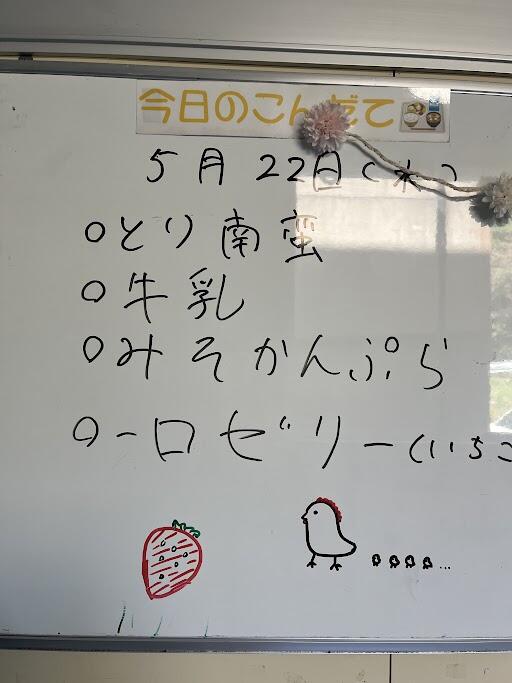 今日のこんだて
5月22日(水)
○とり南蛮
○牛乳
○みそかんぷら
○一口ゼリー(いちご